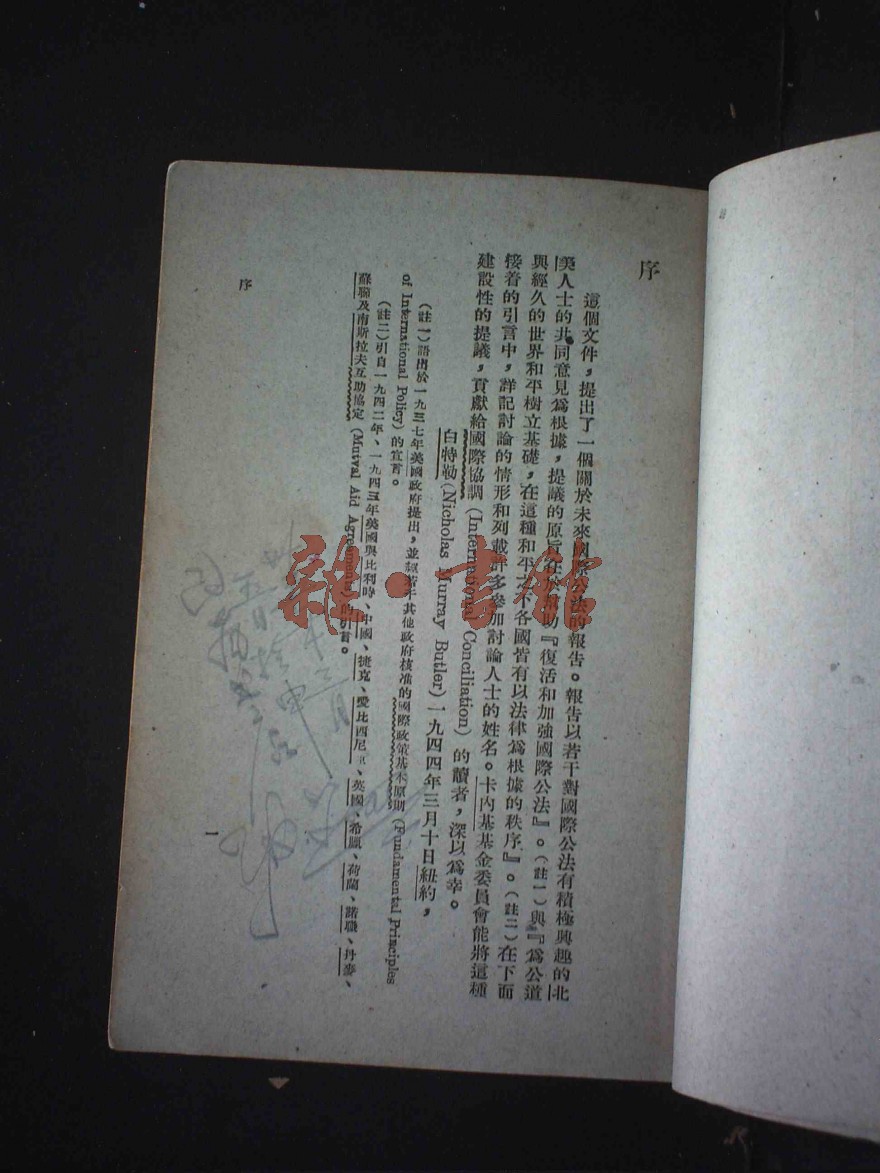 序
這個文件，提出了一個關於未來國際公法的報告。報告以若干對國際公法有積極興趣的北
美人士的共同意見爲根據，提議的原旨在於幫助『復活和加強國際公法』。（註一）與『爲公道
與經久的世界和平樹立基礎，在這種和平之下各國皆有以法律爲根據的秩序。』。（註二）在下面
接着的引言中，詳記討論的情形和列載許多參加討論人士的姓名。卡內基基金委員會能將這種
建設性的提議，貢獻給國際協調 (International Conciliation) 的讀者，深以爲幸。
白特勒 (Nicholas Murray Butler) 一九四四年三月十日紐約，
（註一）語出於一九三七年英國政府提出，並經若干其他政府核准的國際政策基本原則 (Fundamental Principles
of International Policy) 的宣言。
（註二）引自一九四二年、一九四三年英國與比利時、中國、捷克、愛比西尼亞、英國、希臘、荷蘭、諾職、丹麥、
蘇聯及南斯拉夫互助協定 (Mutval Aid Agreements) 的引言。
序
一
雜·書館